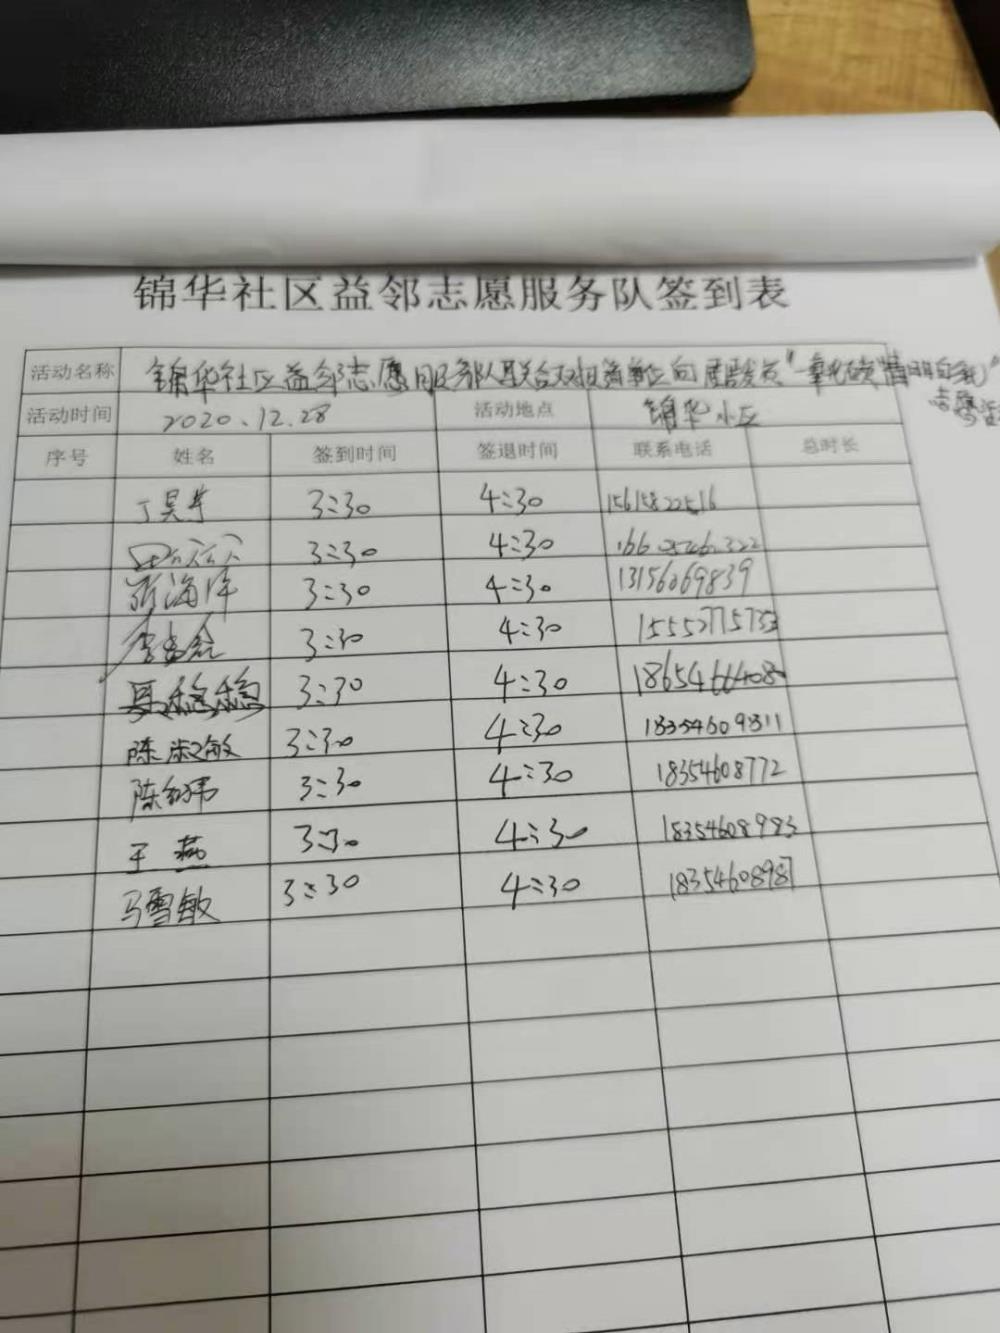 锦华社区益邻志愿服务队签到表
活动名称 锦华社区益邻志愿服务队联合双报到单位向居民发
活动时间 2020.12.28 活动地点 锦华小区
序号 姓名 签到时间 签退时间 联系电话 总时长
丁昊 3:30 4:30 15615822516
3:30 4:30
海洋 3:30 4:30 13156069839
李 3:30 4:30
聂稳稳 3:30 4:30
陈淑敏 3:30 4:30 18354609311
陈 3:30 4:30 18354608772
王燕 3:30 4:30 18354608983
马雪敏 3:30 4:30 18354608987